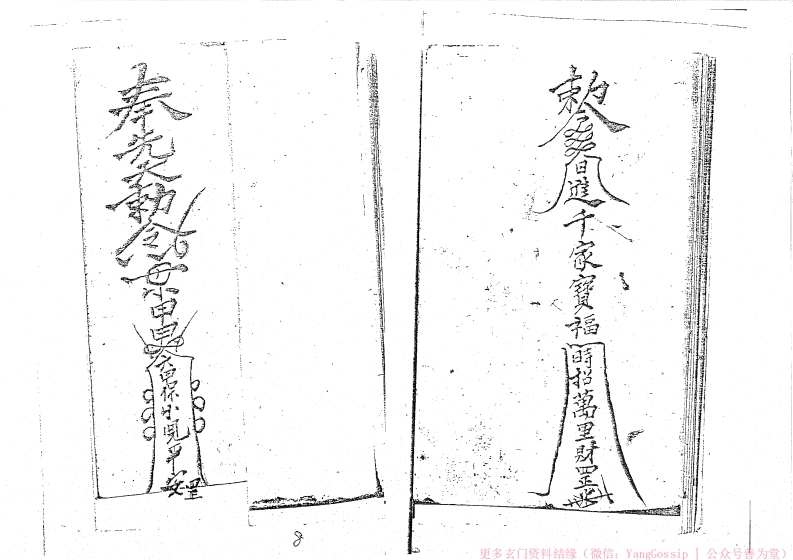 敕令
日進千家寶福
時招萬里財罡
奉先天勅令安
保小兒平安罡
8
更多玄门资料结缘（微信：YangGossip | 公众号善为堂）